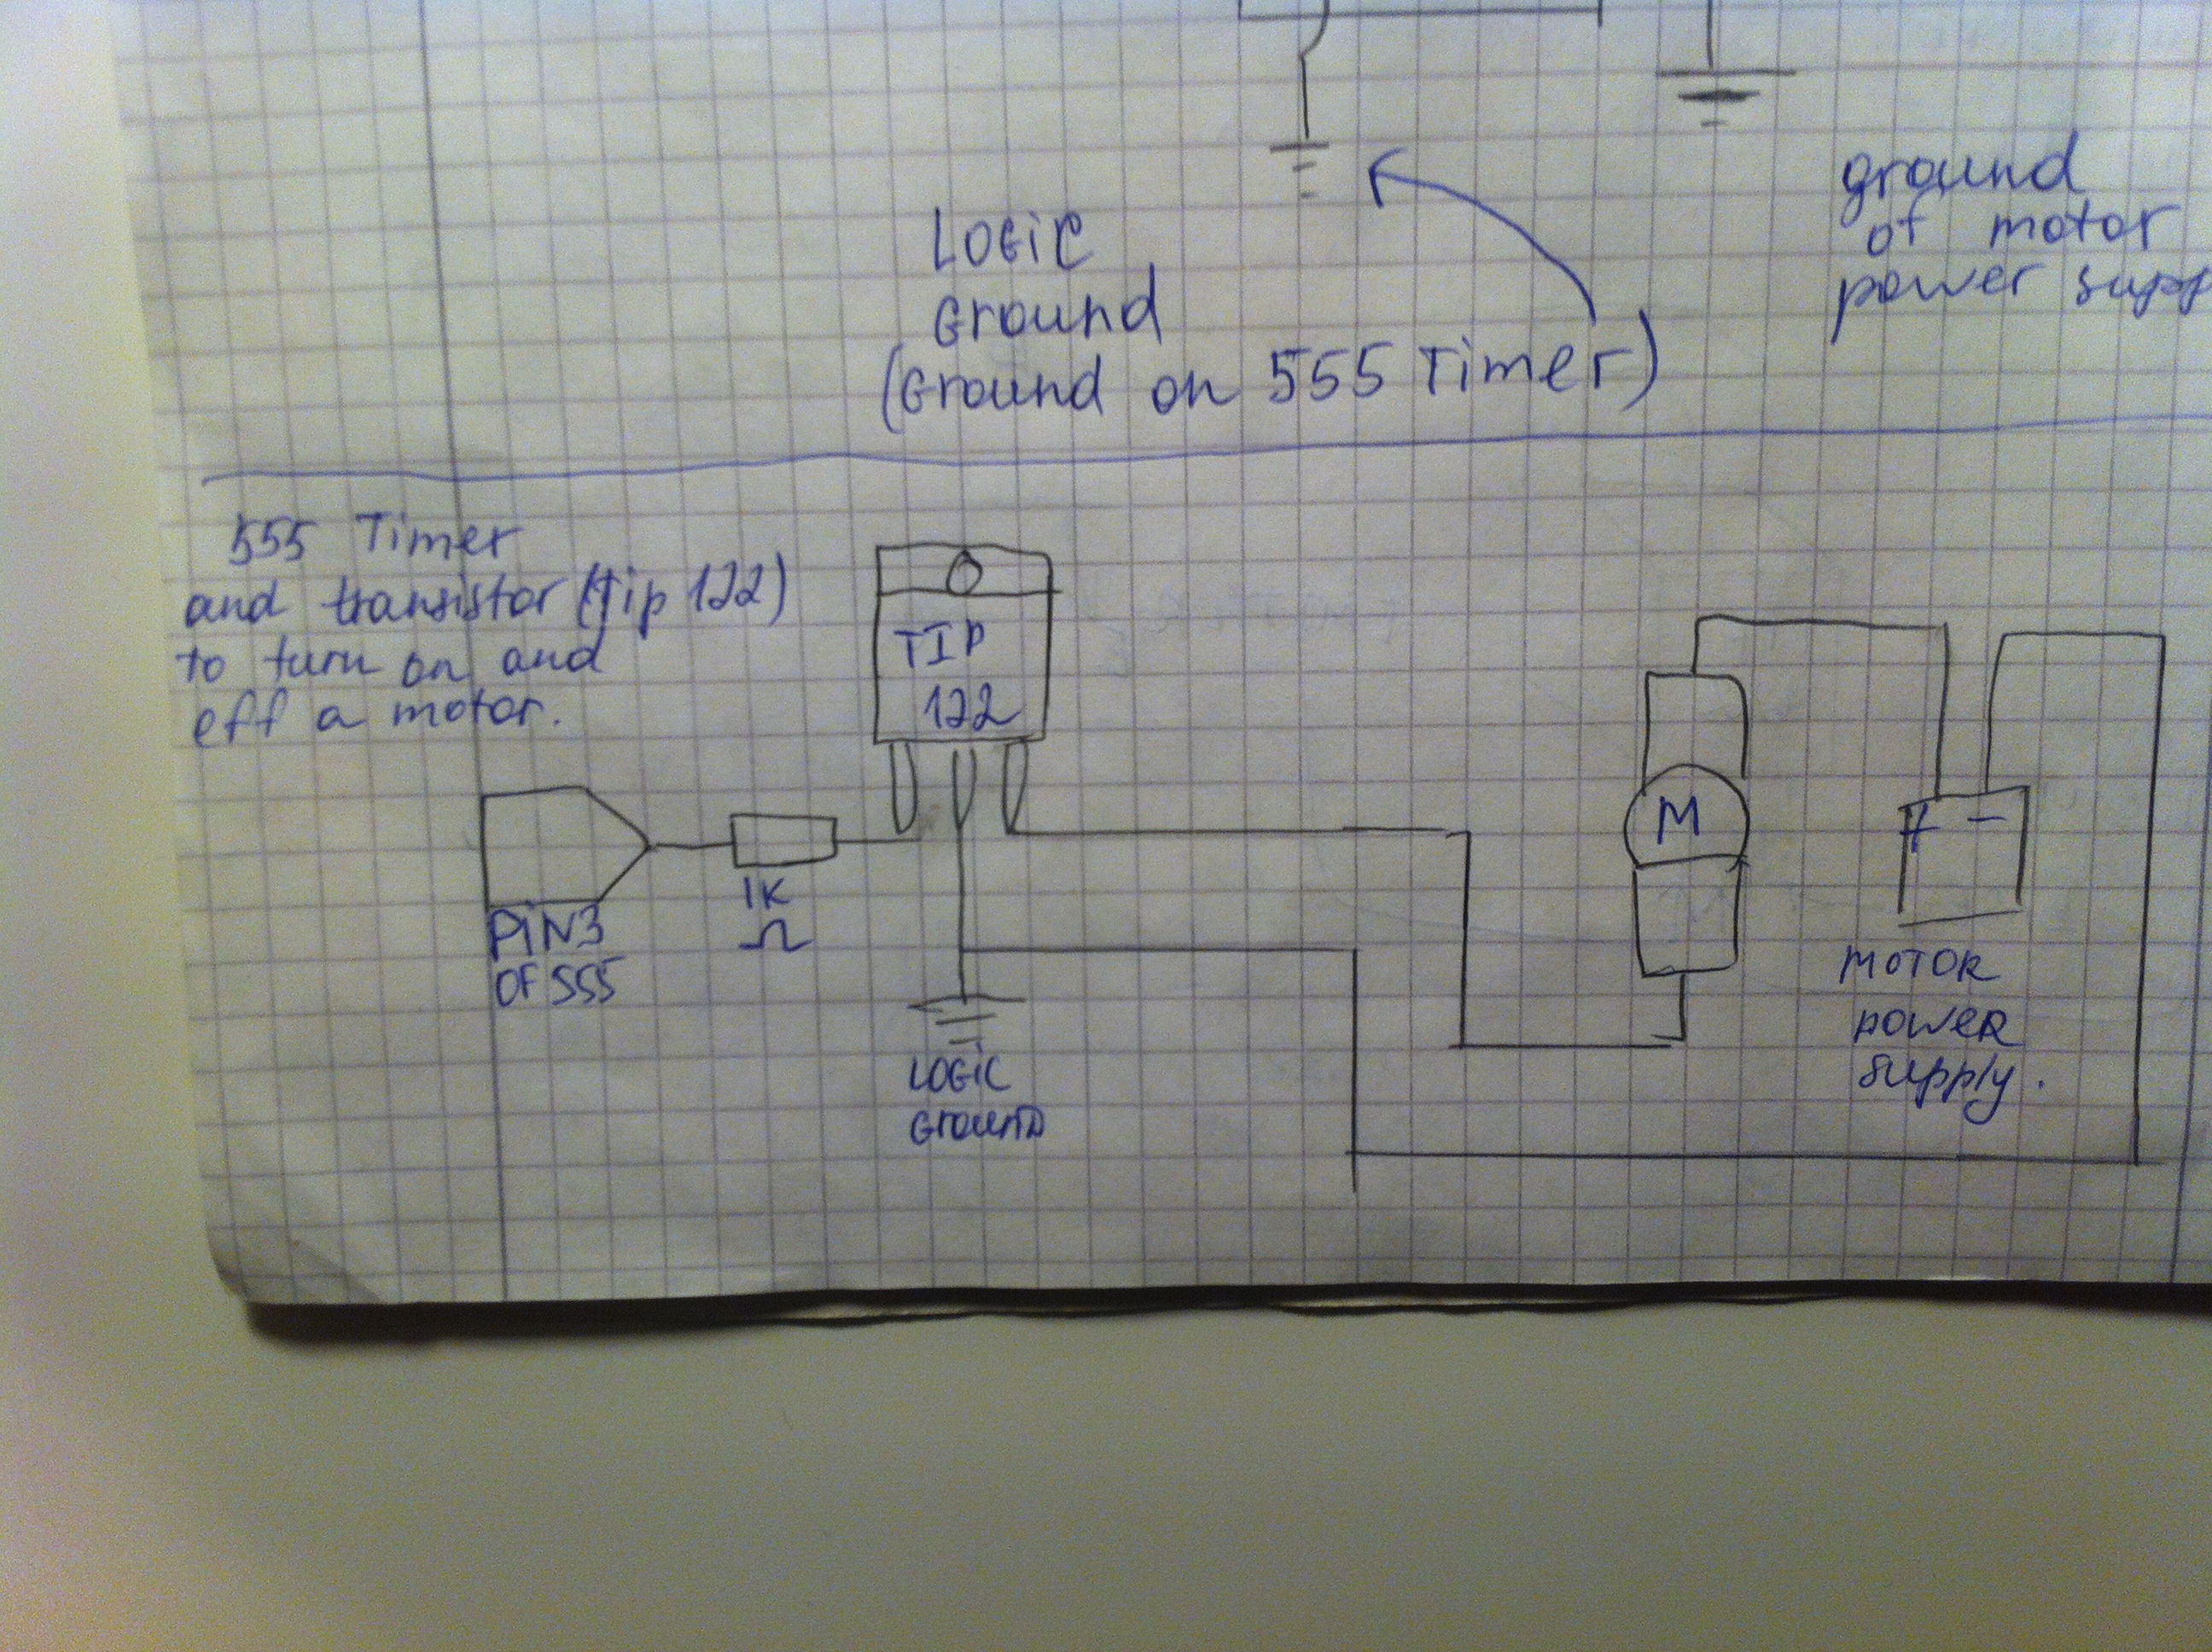 LOGIC
Ground
(Ground on 555 Timer)
ground
of motor
power supp
555 Timer
and transistor (Tip 122)
to turn on and
off a motor.
TIP
122
PIN3
OF 555
1K
Ω
LOGIC
GrounD
M
+ -
MOTOR
POWER
supply.